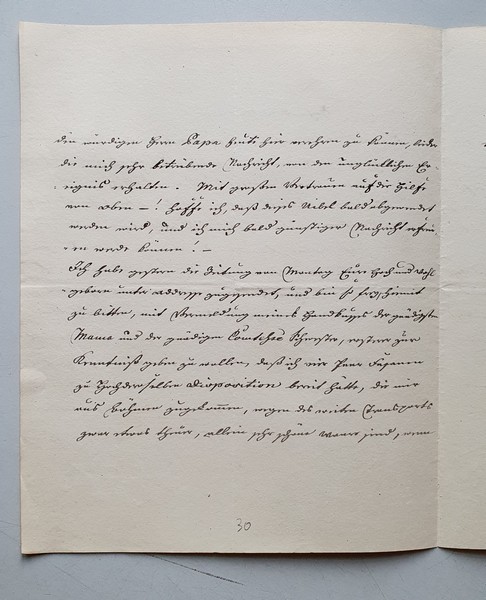 den würdigen Herrn Papa heute hier verehren zu können, leider
die mich sehr betrübende Nachricht, von dem unglücklichen Er-
eignis erhalten. Mit großem Vertrauen auf die Hilfe
von Oben –! hoffe ich, daß dieses Uibel bald abgewendet
werden wird, und ich mich bald günstiger Nachricht erfreu-
en werde können! –
Ich habe gestern die Zeitung von Montag Eure Hoch und Wohl-
geboren unter Addresse zugesendet, und bin so frey, hiemit
zu bitten, mit Vermeldung meines Handkusses der gnädigsten
Mama und der gnädigen Comtesse Schwester, erstere zur
Kenntniß geben zu wollen, daß ich vier Paar Fasanen
zu Hochderoselben Disposition bereit hätte, die mir
aus Böhmen zugekommen, wegen des weiten Transports
zwar etwas theuer, allein sehr schöne Waare sind, wenn
30